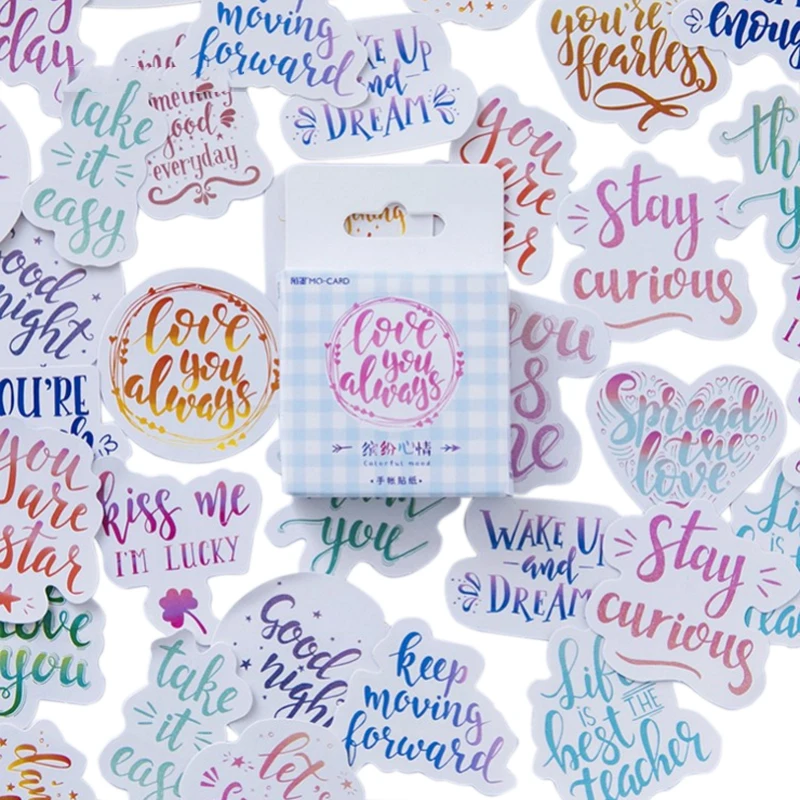 day
moving
forward
WAKE UP
and
DREAM
you're
fearless
enough
take
it
easy
something
good
everyday
you
are
Stay
curious
good
night.
love
you
always
陌墨 MO·CARD
love
you
always
缤纷心情
Colorful mood
·手帐贴纸·
YOU'RE
you
are
star
Spread
the
love
kiss me
I'M LUCKY
you
WAKE UP
and
DREAM
Stay
curious
love
you
Good
night
take
it
easy
keep
moving
forward
Life
IS THE
best
teacher
let's